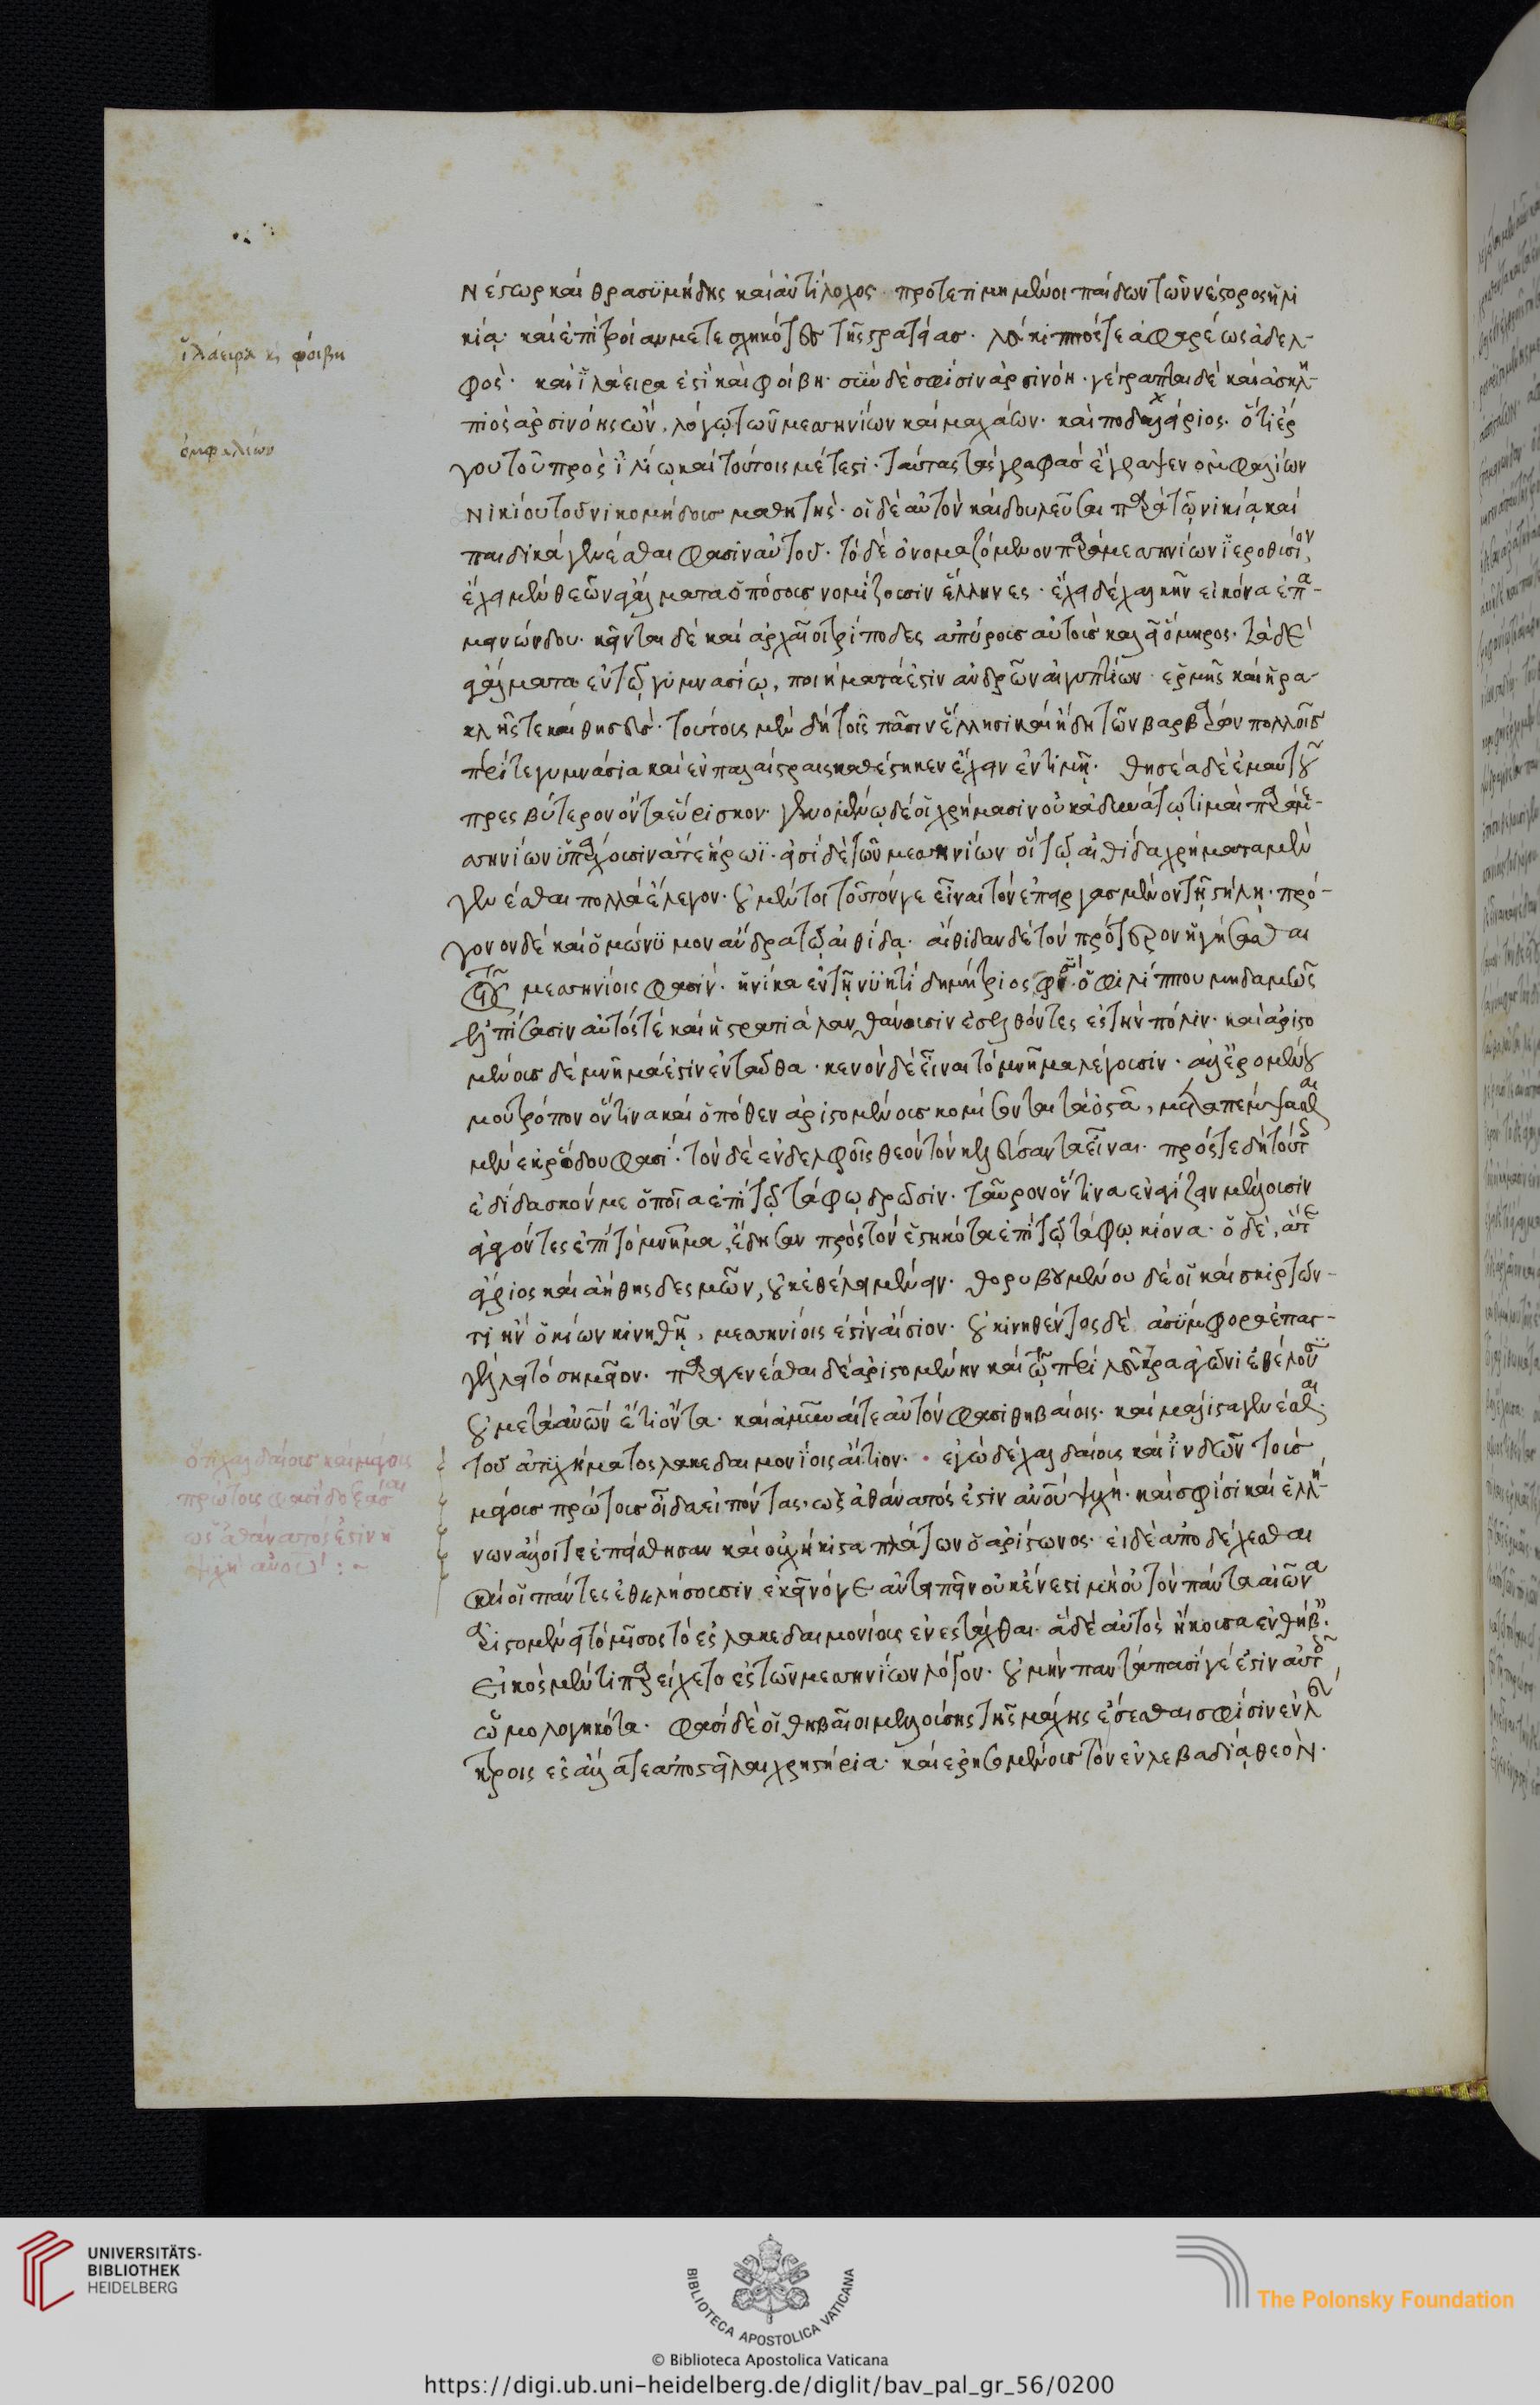 ἱλάειρα κ φοίβη
ὀμφαλίων
Νέστωρ καὶ θρασυμήδης καὶ ἀντίλοχος· προτετιμημένοι παίδων τῶν νέστορος ἡλι
κίᾳ· καὶ ἐπὶ τροίαν μετεσχηκότες τῆς στρατείας· λεύκιππός τε ἀφαρέως ἀδελ-
φὸς· καὶ ἱλάειρά ἐστι καὶ φοίβη· σὺν δέ σφισιν ἀρσινόη· γέγραπται δὲ καὶ ἀσκλη-
πιὸς ἀρσινόης ὢν, λόγῳ τῶν μεσσηνίων καὶ μαχάων· καὶ ποδαλείριος· ὅτι ἔρ
γου τοῦ πρὸς ἰλίῳ καὶ τούτοις μέτεστι· ταύτας τὰς γραφὰς ἔγραψεν ὀμφαλίων
νικίου τοῦ νικομήδους μαθητής· οἱ δὲ αὐτὸν καὶ δουλεῦσαι παρὰ τῷ νικίᾳ καὶ
παιδικὰ γενέσθαι φασὶν αὐτοῦ· τὸ δὲ ὀνομαζόμενον παρὰ μεσσηνίων ἱεροθύσιον,
ἔχει μὲν θεῶν ἀγάλματα ὁπόσους νομίζουσιν ἕλληνες· ἔχει δὲ χαλκῆν εἰκόνα ἐπα-
μινώνδου· κεῖνται δὲ καὶ ἀρχαῖοι τρίποδες ἀπύρους αὐτοὺς καλεῖ ὅμηρος· τὰ δὲ
ἀγάλματα ἐν τῷ γυμνασίῳ, ποιήματά ἐστιν ἀνδρῶν αἰγυπτίων· ἑρμῆς καὶ ἡρα-
κλῆς τε καὶ θησεύς· τούτους μὲν δὴ τοῖς πᾶσιν ἕλλησι καὶ ἤδη τῶν βαρβάρων πολλοῖς
περί τε γυμνάσια καὶ ἐν παλαίστραις καθέστηκεν ἔχειν ἐν τιμῇ· θησέα δὲ ἐμαυτοῦ
πρεσβύτερον ὄντα εὕρισκον· γενομένῳ δέ οἱ χρήμασιν οὐκ ἀδυνάτῳ τιμαὶ παρὰ με-
σσηνίων ὑπάρχουσιν ἅτε ἥρωϊ· εἰσὶ δὲ τῶν μεσσηνίων οἳ τῷ αἰθίδᾳ χρήματα μὲν
γενέσθαι πολλὰ ἔλεγον· οὐ μέντοι τοῦτόν γε εἶναι τὸν ἐπειργασμένον τῇ στήλῃ· πρό-
γονον δὲ καὶ ὁμώνυμον ἄνδρα τῷ αἰθίδᾳ· αἰθίδαν δὲ τὸν πρότερον ἡγήσασθαι
τοῖς μεσσηνίοις φασὶν· ἡνίκα ἐν τῇ νυκτὶ δημήτριος ὁ φιλίππου μηδαμῶς
ἐλπίσασιν αὐτός τε καὶ ἡ στρατιὰ λανθάνουσιν ἐσελθόντες ἐς τὴν πόλιν· καὶ ἀριστο
μένους δὲ μνῆμά ἐστιν ἐνταῦθα· κενὸν δὲ εἶναι τὸ μνῆμα λέγουσιν· ἀλλ᾽ ἐρομένου
μου τρόπον ὅντινα καὶ ὁπόθεν ἀριστομένους κομίσαιντο τὰ ὀστᾶ, μεταπέμψασθαι
μὲν ἐκ ῥόδου φασί· τὸν δὲ ἐν δελφοῖς θεὸν τὸν κελεύσαντα εἶναι· πρός τε δὴ τούτοις
ἐδίδασκόν με ὁποῖα ἐπὶ τῷ τάφῳ δρῶσιν· ταῦρον ὅντινα ἐναγίζειν μέλλουσιν
ἀγαγόντες ἐπὶ τὸ μνῆμα, ἔδησαν πρὸς τὸν ἑστηκότα ἐπὶ τῷ τάφῳ κίονα· ὁ δὲ, ἅτε
ἄγριος καὶ ἀήθης δεσμῶν, οὐκ ἐθέλει μένειν· θορυβουμένου δέ οἱ καὶ σκιρτῶν-
τι ἢν ὁ κίων κινηθῇ, μεσσηνίοις ἐστὶν αἴσιον· οὐ κινηθέντος δὲ ἀσύμφορα ἐπαγ-
γέλλει τὸ σημεῖον· παραγενέσθαι δὲ ἀριστομένην καὶ τῷ περὶ λεῦκτρα ἀγῶνι ἐθέλουσιν
οὐ μετὰ ἀνθρώπων ἔτι ὄντα· καὶ ἀμῦναί τε αὐτόν φασι θηβαίοις· καὶ μάλιστα γενέσθαι
τοῦ ἀτυχήματος λακεδαιμονίοις αἴτιον· ἐγὼ δὲ χαλδαίους καὶ ἰνδῶν τοὺς
μάγους πρώτους οἶδα εἰπόντας, ὡς ἀθάνατός ἐστιν ἀνθρώπου ψυχή· καί σφισι καὶ ἑλλή-
νων ἄλλοι τε ἐπείσθησαν καὶ οὐχ ἥκιστα πλάτων ὁ ἀρίστωνος· εἰ δὲ ἀποδέχεσθαι
καὶ οἱ πάντες ἐθελήσουσιν ἐκεῖνό γε ἀντειπεῖν οὐκ ἔνεστι μὴ οὐ τὸν πάντα αἰῶνα
ἀριστομένει τὸ μῖσος τὸ ἐς λακεδαιμονίους ἐνεστάχθαι· ἃ δὲ αὐτὸς ἤκουσα ἐν θήβαις·
εἰκὸς μέν τι παρείχετο ἐς τῶν μεσσηνίων λόγον· οὐ μὴν παντάπασί γέ ἐστιν αὐτοῖς
ὡμολογηκότα· φασὶ δὲ οἱ θηβαῖοι μελλούσης τῆς μάχης ἔσεσθαι σφίσιν ἐν λεύ
κτροις ἐς ἄλλα τε ἀποστεῖλαι χρηστήρια· καὶ ἐρησομένους τὸν ἐν λεβαδίᾳ θεὸν·
ὅτι χαλδαίους καὶ μάγους
πρώτους φασὶ δοξάσαι
ὡς ἀθάνατός ἐστιν ἡ
ψυχὴ :~
UNIVERSITÄTS-
BIBLIOTHEK
HEIDELBERG
BIBLIOTECA APOSTOLICA VATICANA
© Biblioteca Apostolica Vaticana
The Polonsky Foundation
https://digi.ub.uni-heidelberg.de/diglit/bav_pal_gr_56/0200